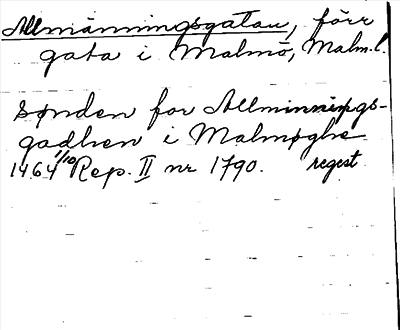 Allmänningsgatan, förr
gata i Malmö, Malm. l.
Sønden for Allminnings-
gadhen i Malmøghe
1464 1/10 Rep. II nr 1790. regest